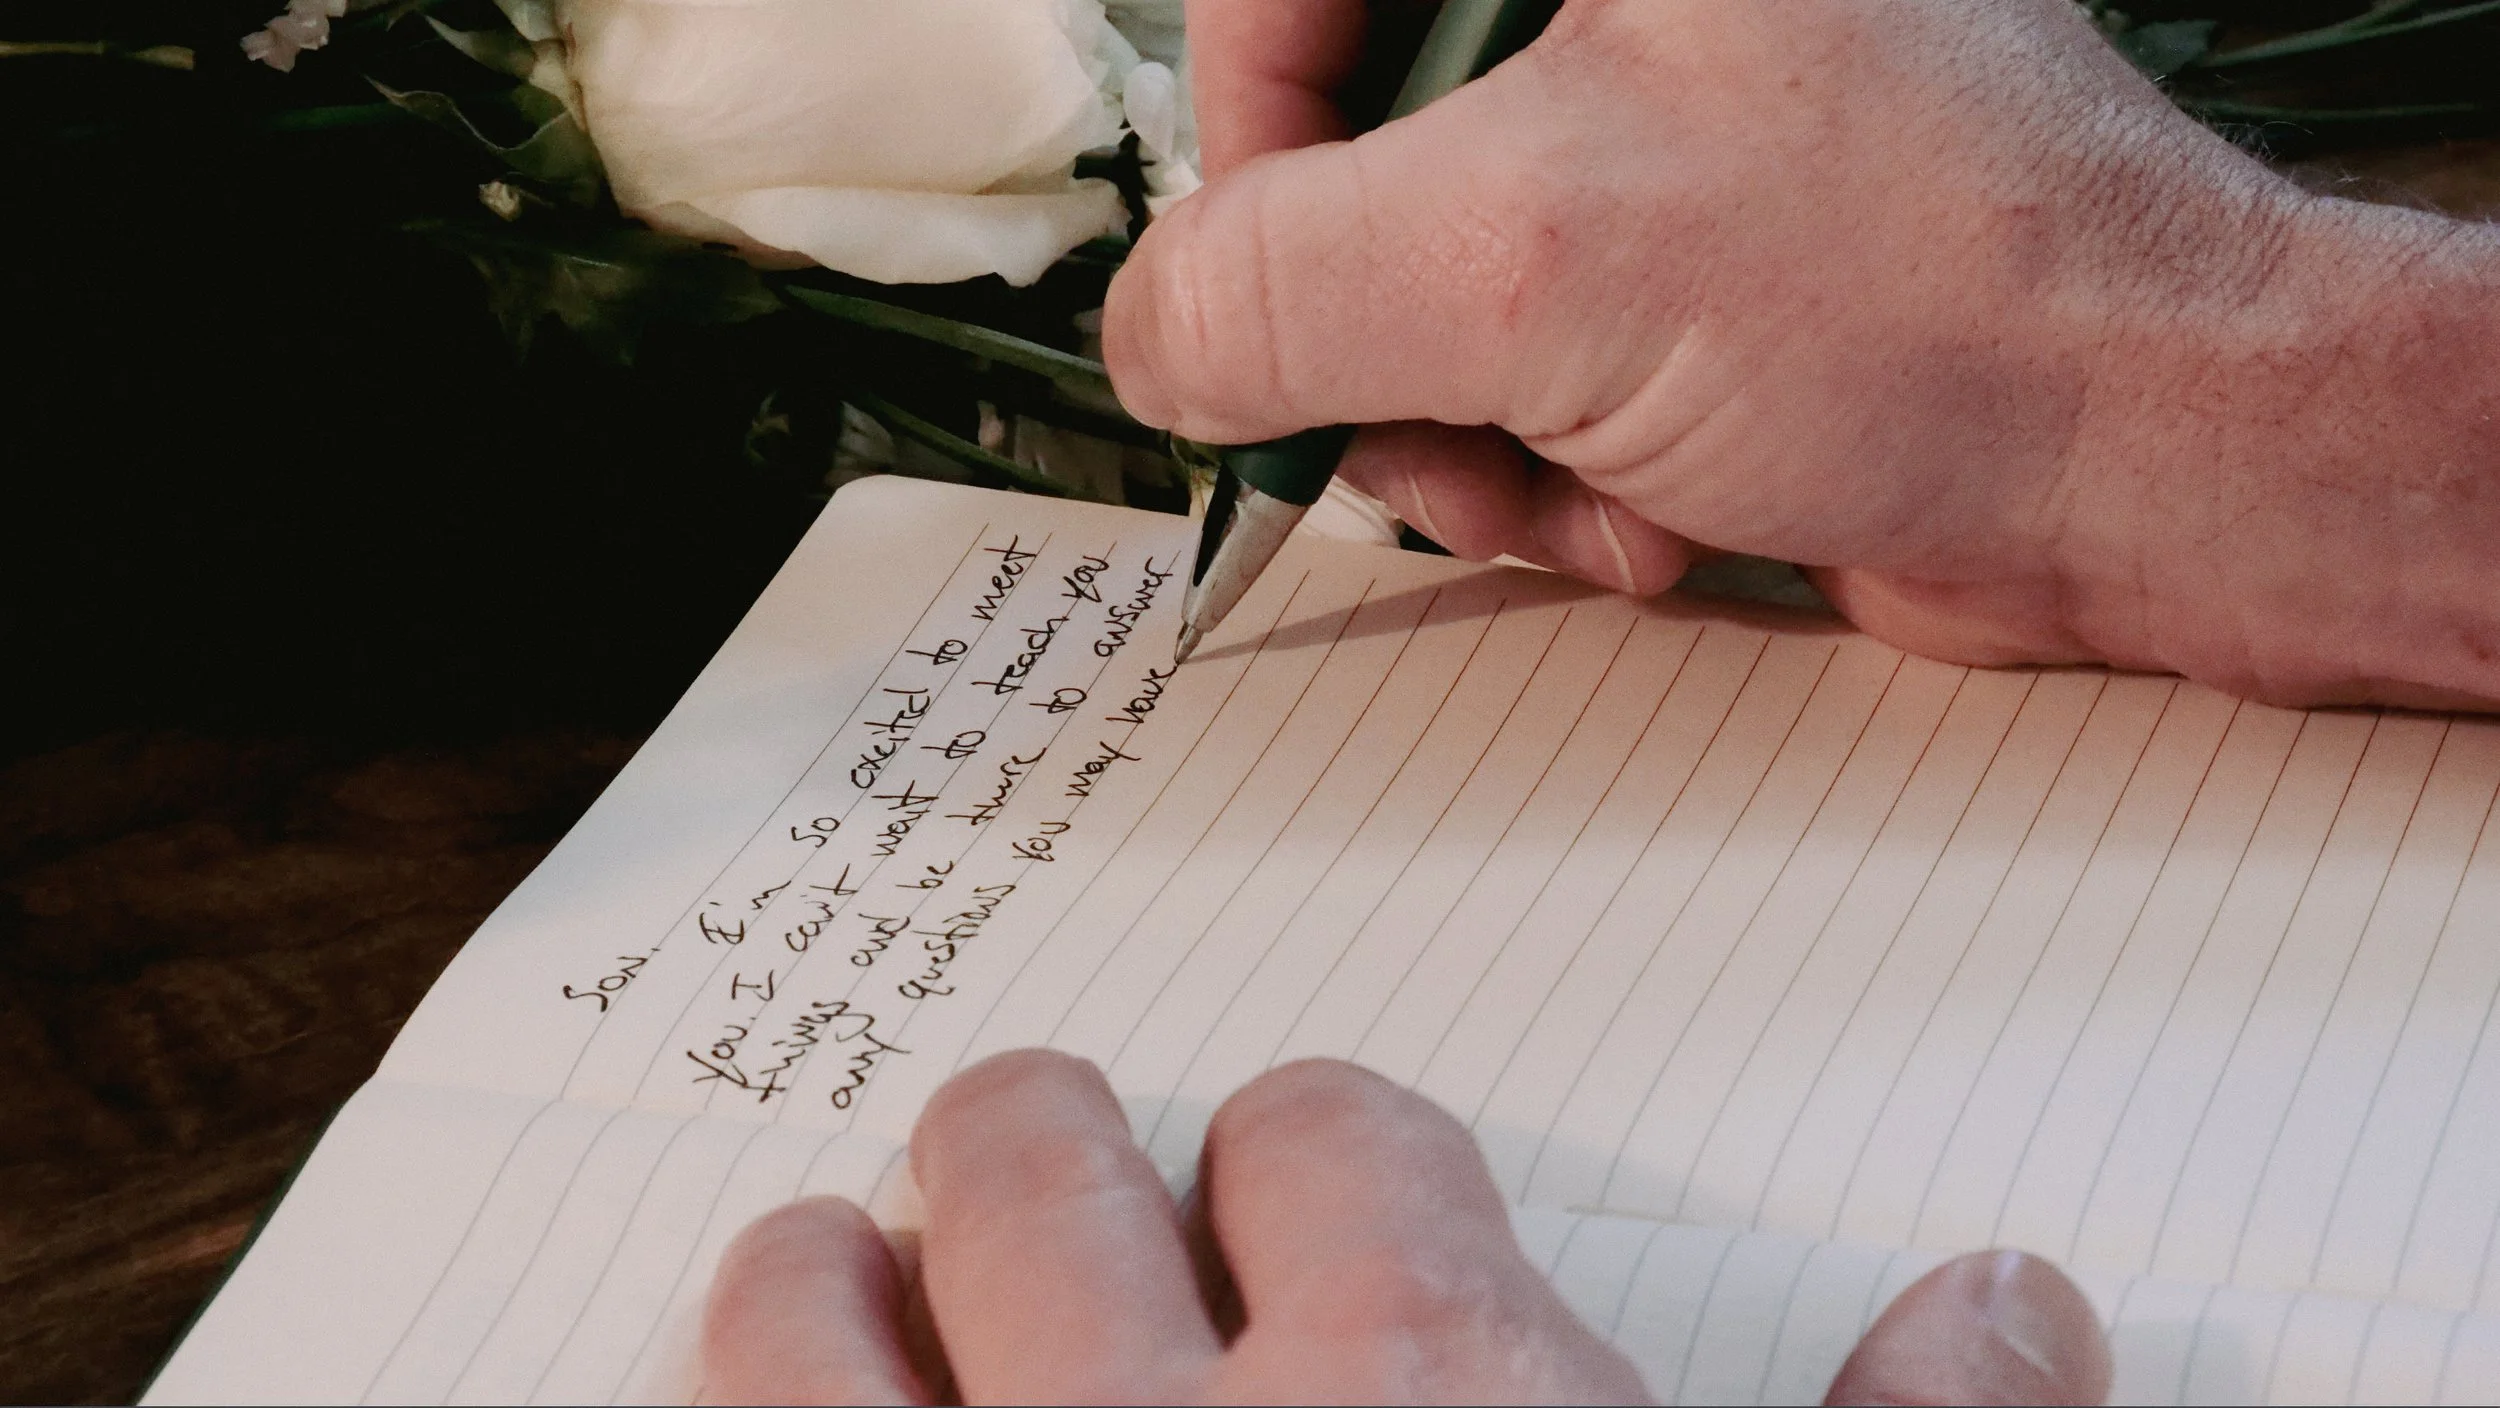 Son,
I'm so excited to meet
you. I can't wait to teach you
things and be there to answer
any questions you may have